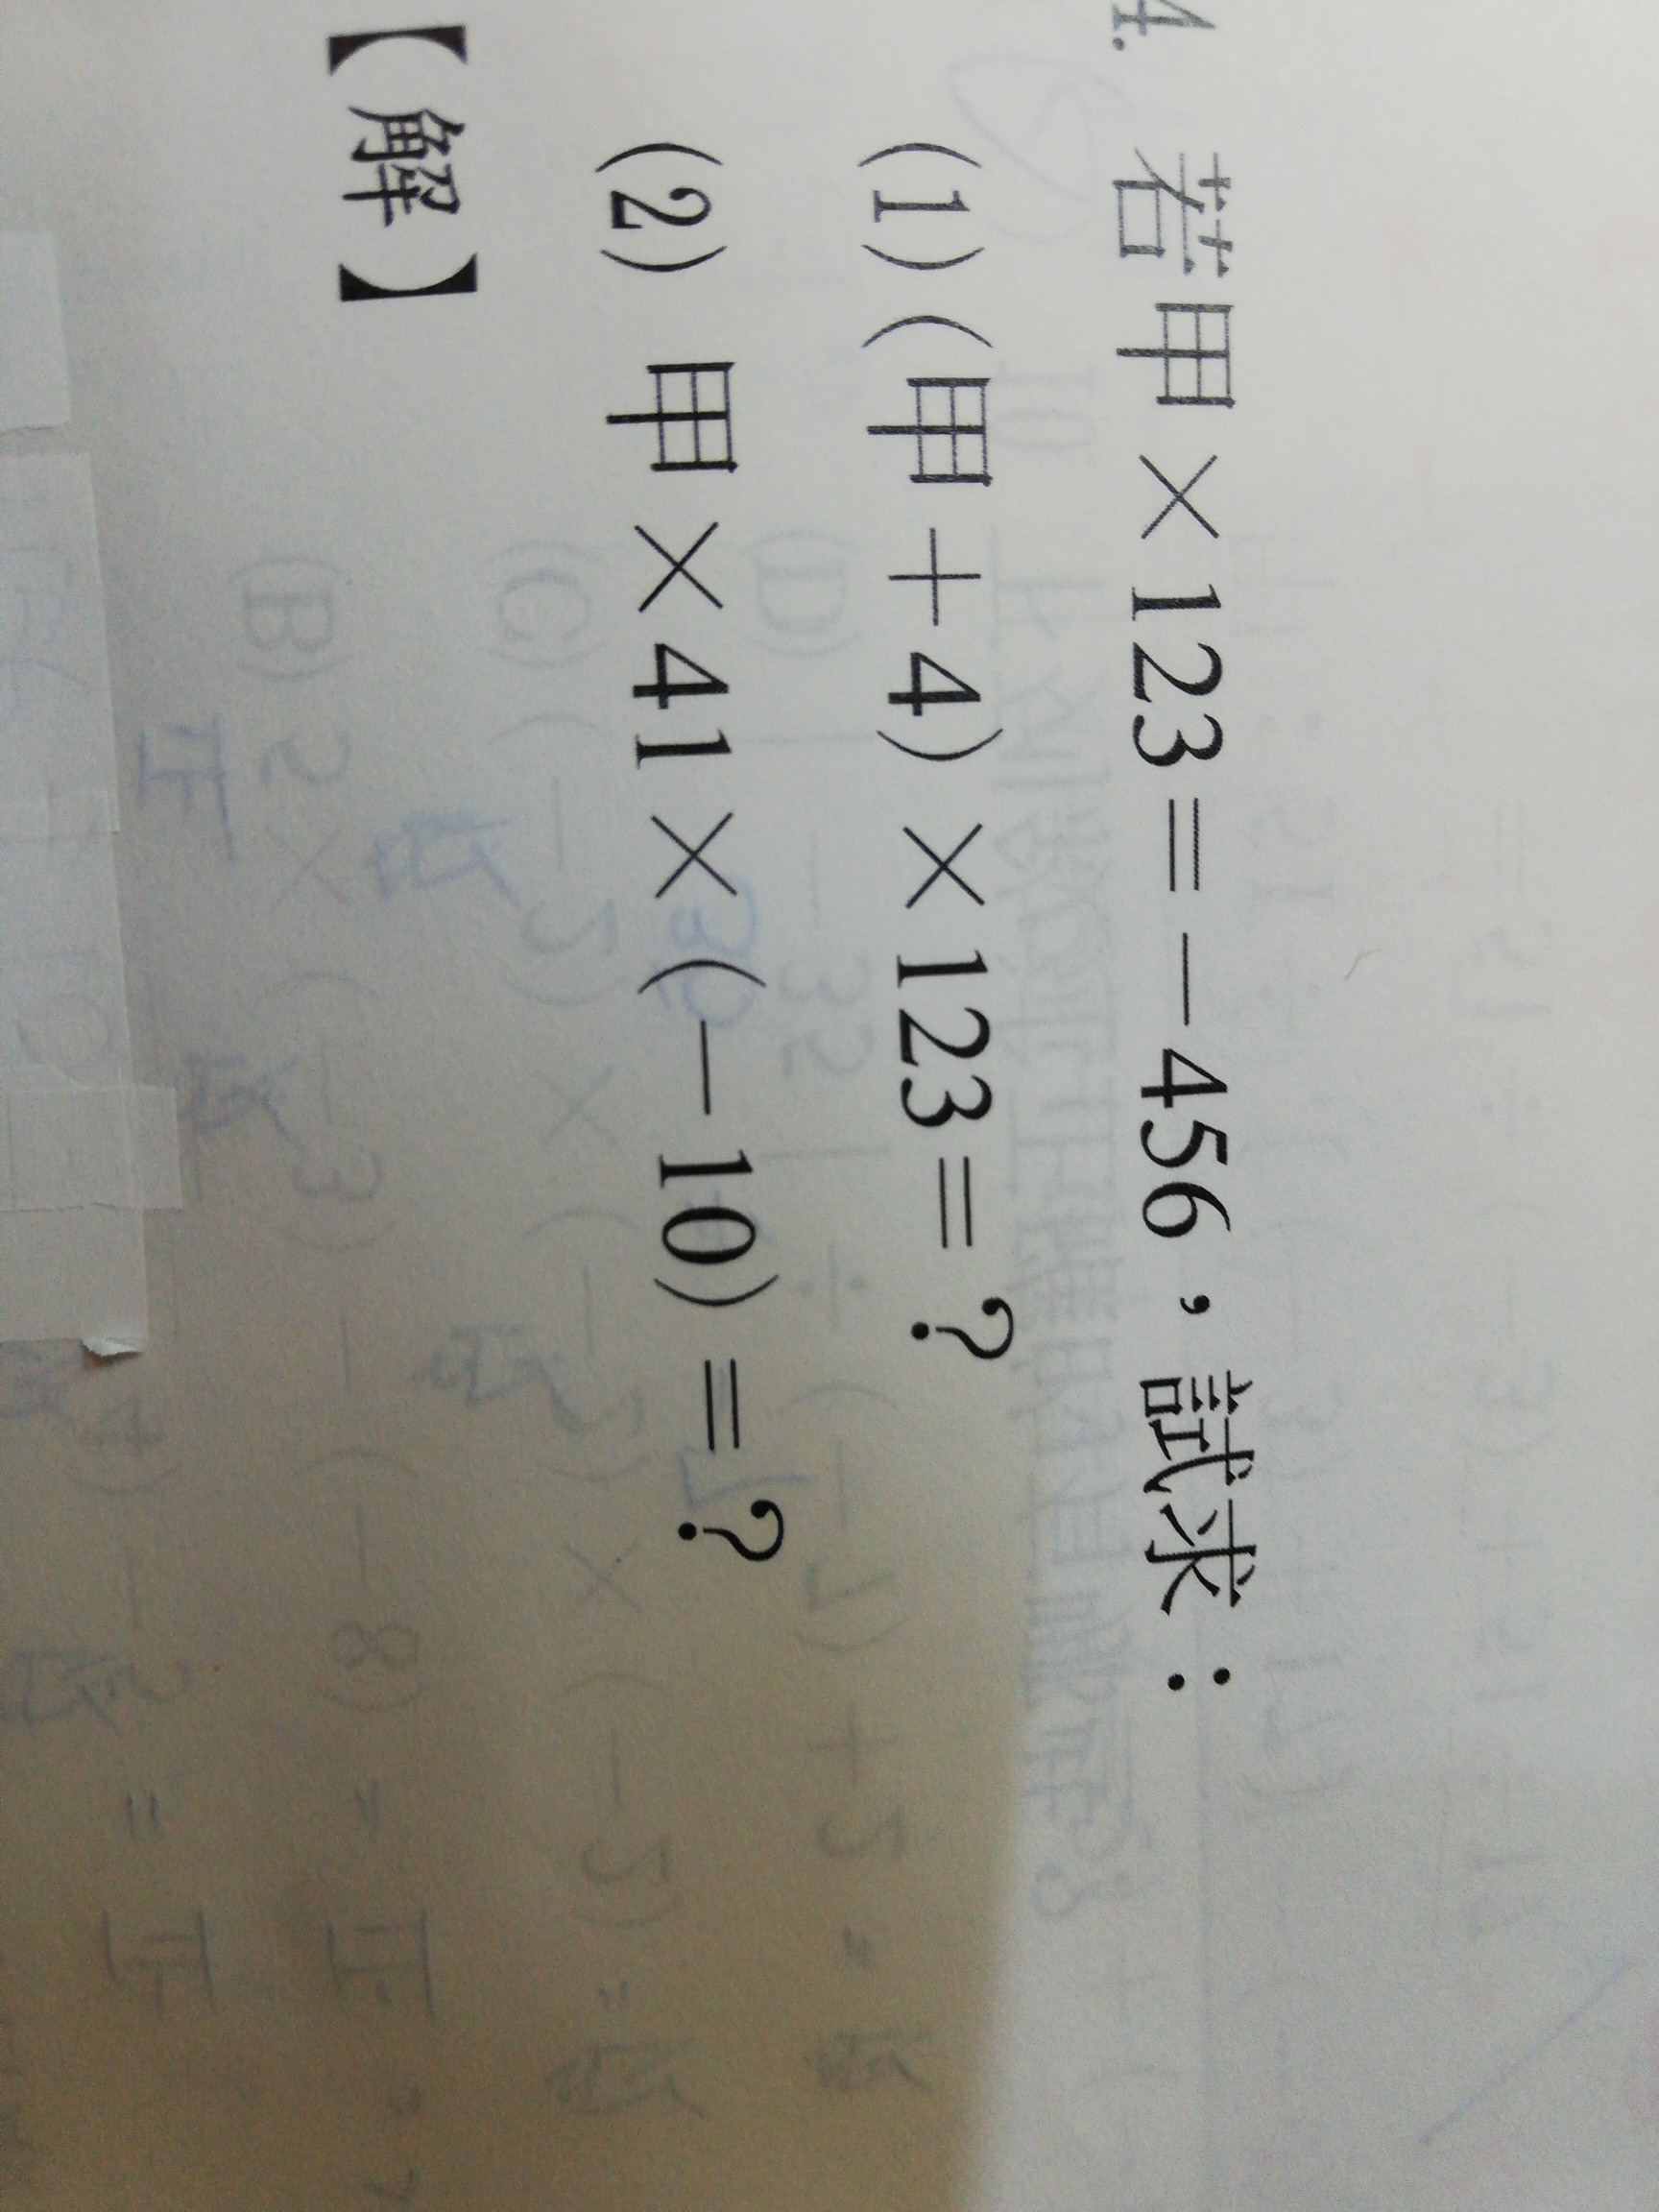 4. 若甲×123=-456,試求:
(1)(甲+4)×123=?
(2) 甲×41×(-10)=?
【解】